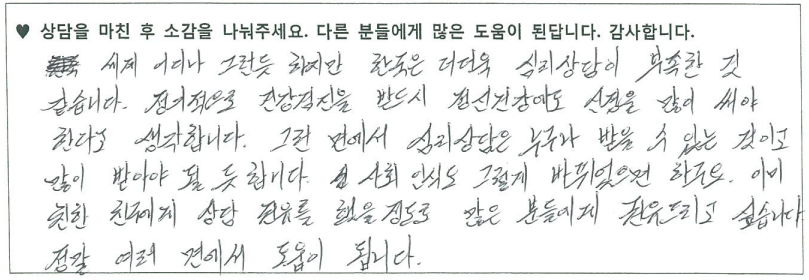 ♥ 상담을 마친 후 소감을 나눠주세요. 다른 분들에게 많은 도움이 된답니다. 감사합니다.
세계 어디나 그런듯 하지만 한국은 더더욱 심리상담이 부족한 것
같습니다. 정기적으로 건강검진을 받듯이 정신건강에도 신경을 많이 써야
한다고 생각합니다. 그런 면에서 심리상담은 누구나 받을 수 있는 것이고
많이 받아야 될 듯 합니다. 사회 인식도 그렇게 바뀌었으면 하구요. 이미
친한 친구에게 상담 권유를 했을 정도로 많은 분들에게 권유드리고 싶습니다
정말 여러 면에서 도움이 됩니다.